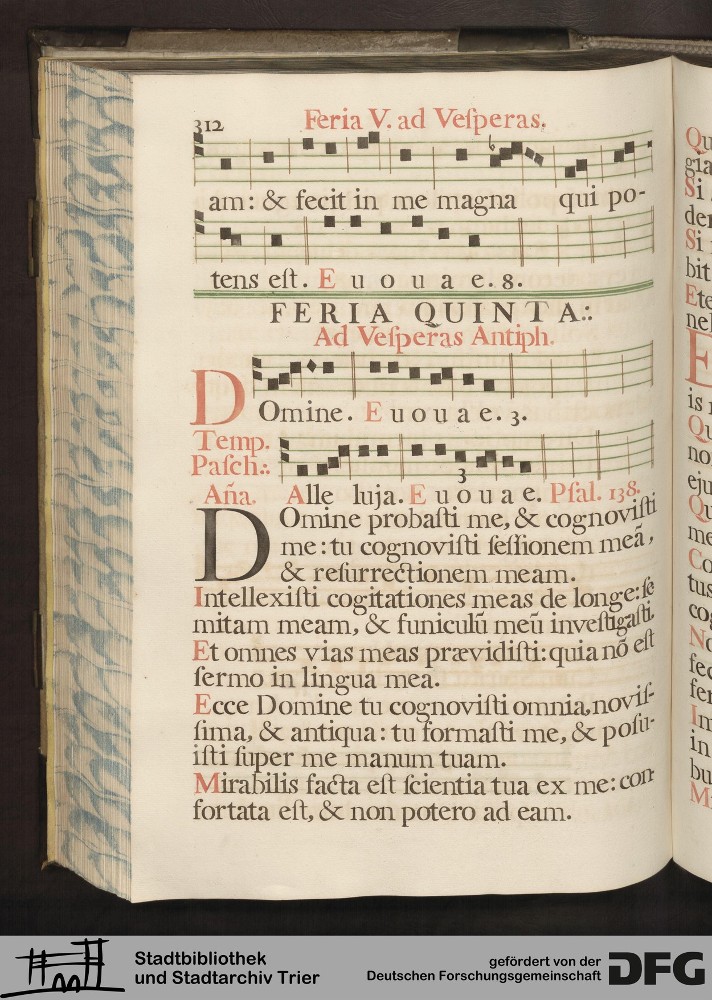 312 Feria V. ad Veſperas.
am: & fecit in me magna qui po-
tens eſt. E u o u a e. 8.
FERIA QUINTA.
Ad Veſperas Antiph.
DOmine. E u o u a e. 3.
Temp.
Paſch.
3
Aña. Alle luja. E u o u a e. Pſal. 138.
DOmine probaſti me, & cognoviſti
me: tu cognoviſti ſeſſionem meã,
& reſurrectionem meam.
Intellexiſti cogitationes meas de longe: ſe
mitam meam, & funiculũ meũ inveſtigaſti.
Et omnes vias meas prævidiſti: quia nõ eſt
ſermo in lingua mea.
Ecce Domine tu cognoviſti omnia, noviſ-
ſima, & antiqua: tu formaſti me, & poſu-
iſti ſuper me manum tuam.
Mirabilis facta eſt ſcientia tua ex me: con-
fortata eſt, & non potero ad eam.
Qu
gia
Si
der
Si
bit
Ete
nel
E
is
Qu
no
eju
Qu
me
Co
tus
cog
No
fec
fer
Im
in
bu
Mi
Stadtbibliothek
und Stadtarchiv Trier
gefördert von der
Deutschen Forschungsgemeinschaft
DFG